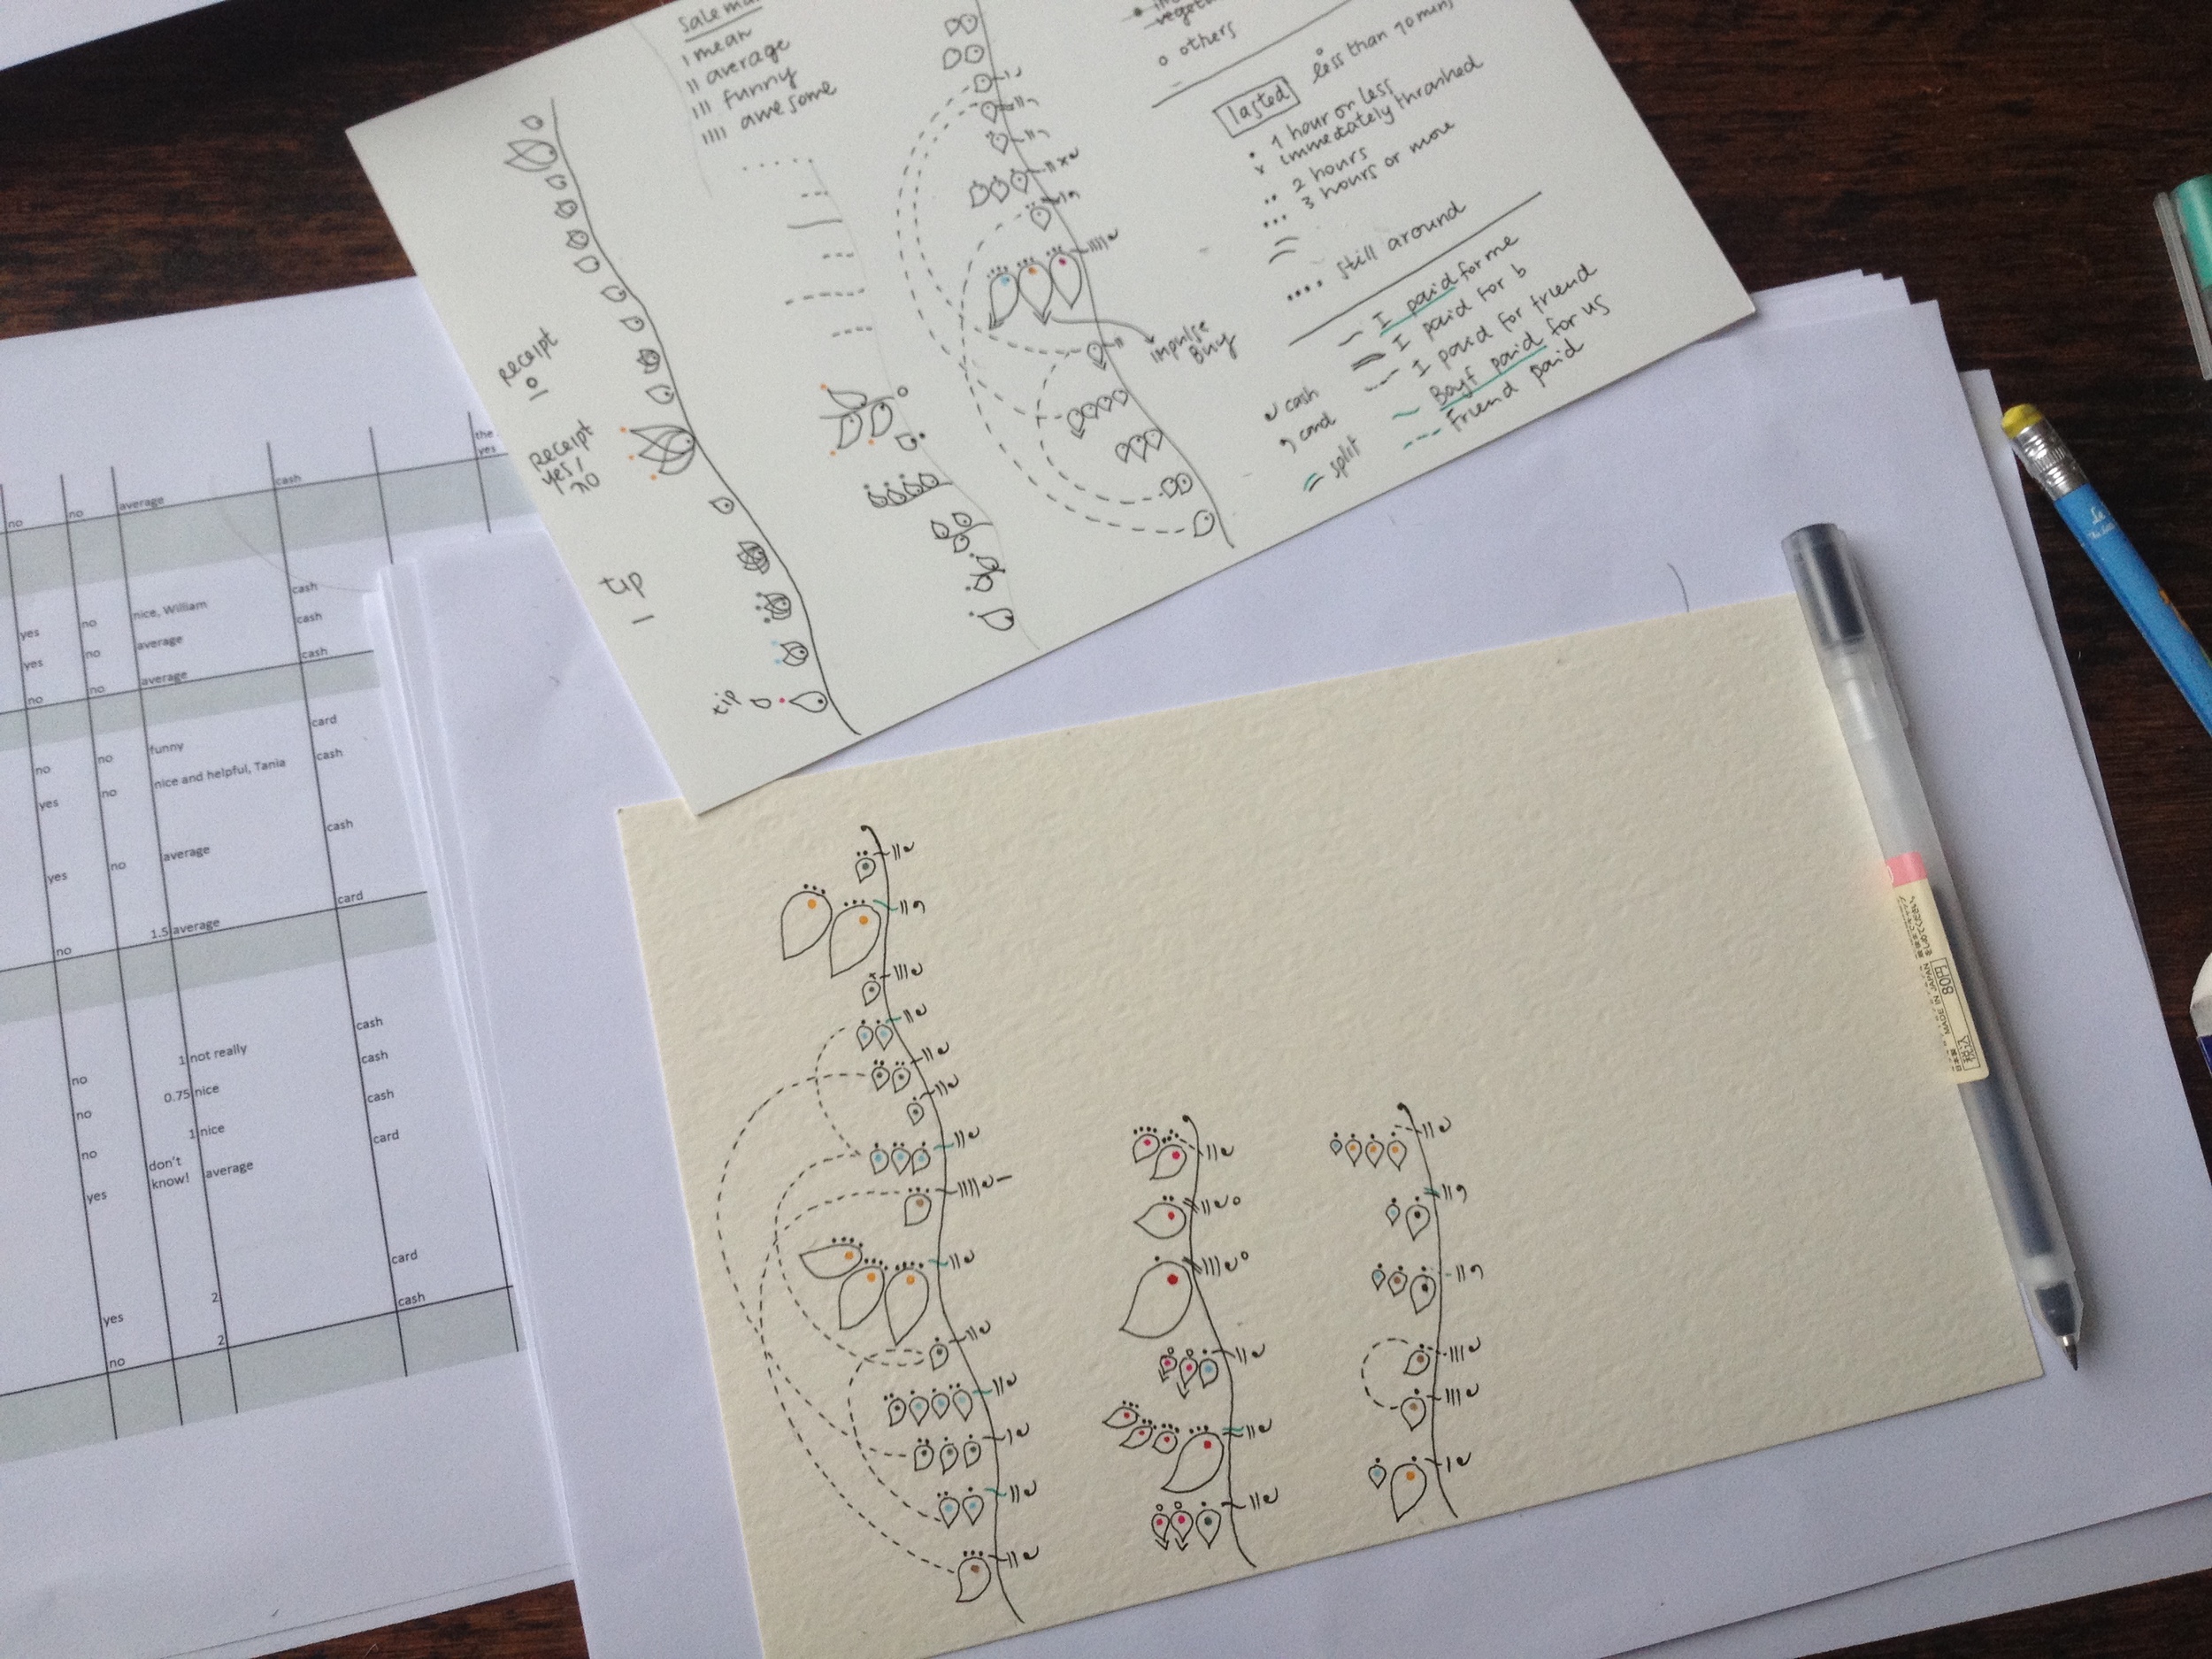 Salema
I mean
II average
III funny
IIII awesome
Receipt
Receipt
yes/
no
tip
tip
Impulse
Buy
others
lasted
less than 10 mins
1 hour or less
x immediately thrashed
2 hours
3 hours or more
still around
I paid for me
I paid for b
I paid for friend
Boyf paid for us
Friend paid
cash
card
split
the
yes
no no average cash
yes no nice, William cash
yes no average cash
no no average cash
no no funny card
yes no nice and helpful, Tania cash
yes no average cash
no 1.5 average card
no 1 not really cash
no 0.75 nice cash
no 1 nice cash
yes don't know! average card
yes 2 card
no 2 cash
MADE IN JAPAN
80円